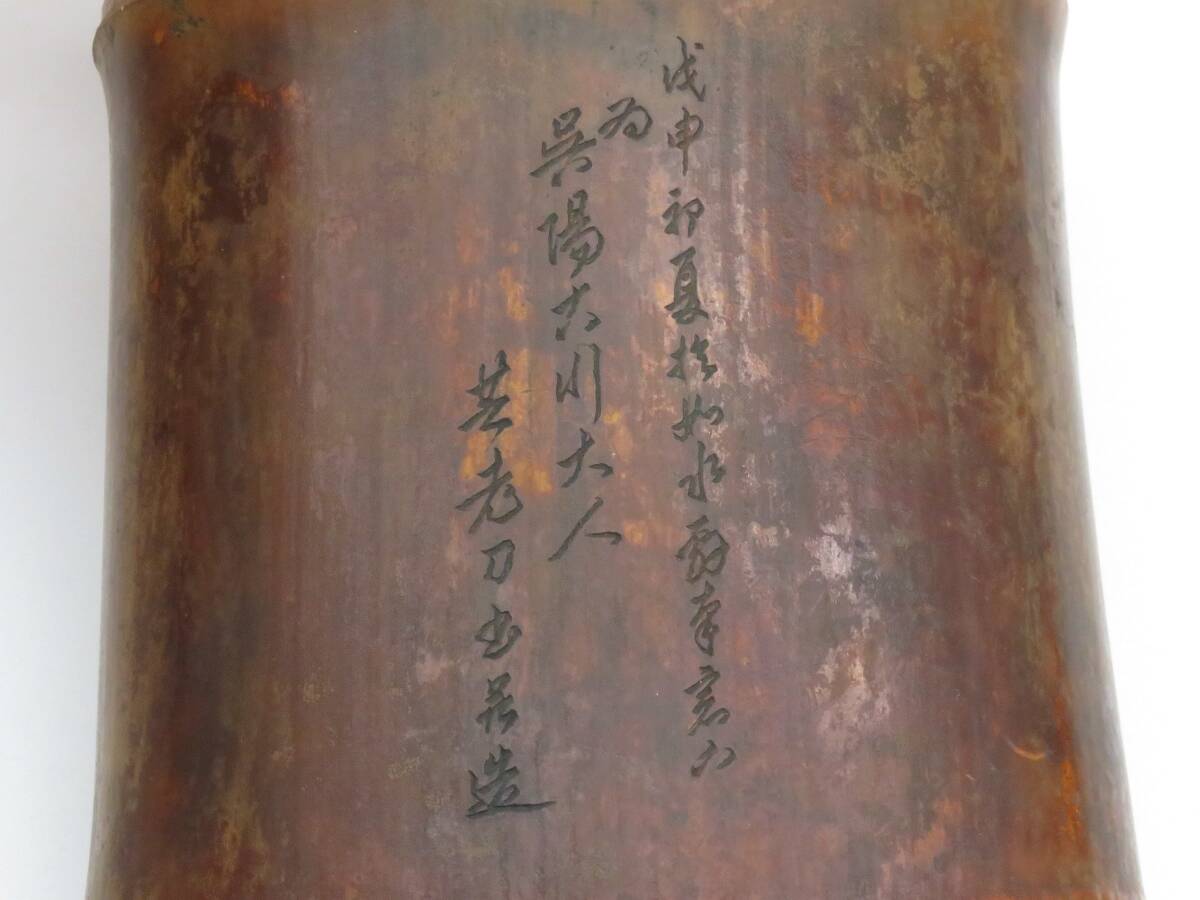 戊申初夏於如水
為
吳陽大川大人
芸老刀書并造